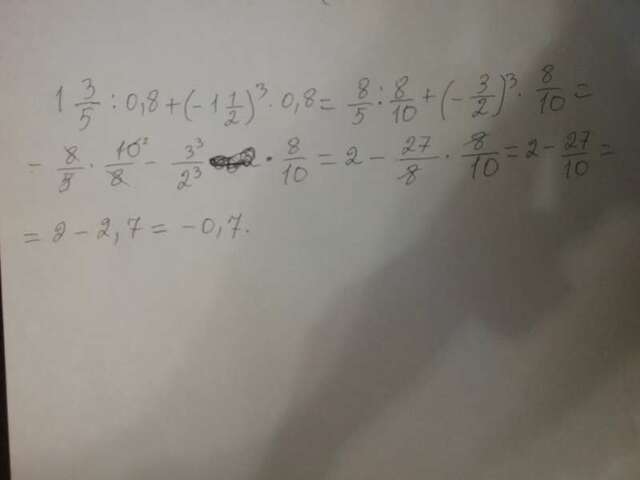 1 3/5 : 0,8 + (-1 1/2)^3 · 0,8 = 8/5 : 8/10 + (-3/2)^3 · 8/10 =
- 8/5 · 10^2/8 - 3^3/2^3 · 8/10 = 2 - 27/8 · 8/10 = 2 - 27/10 =
= 2 - 2,7 = -0,7.